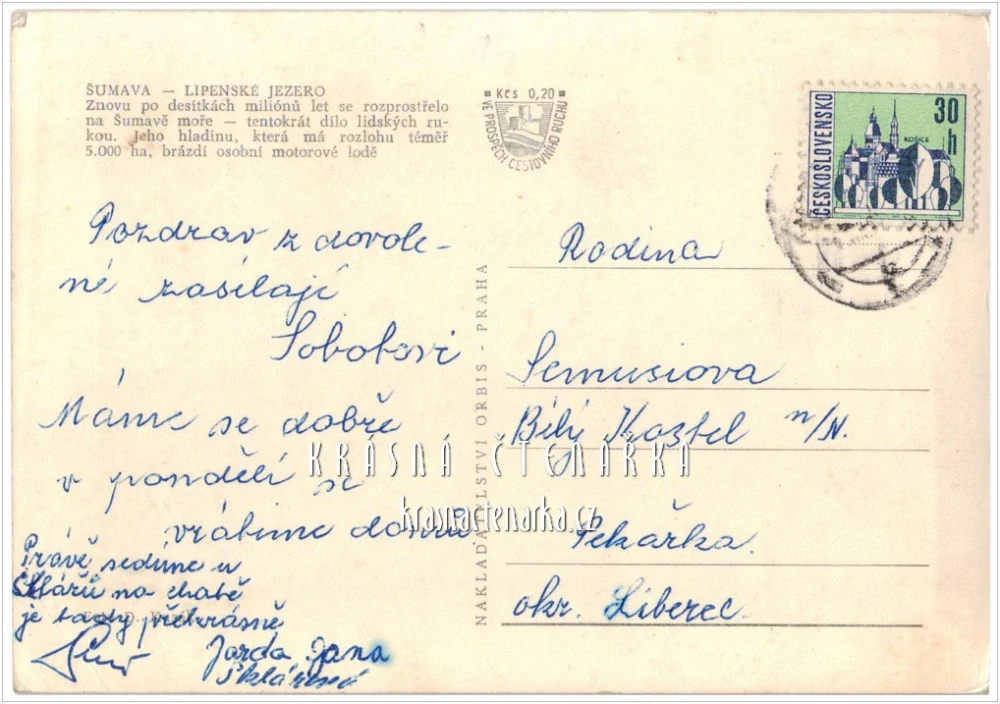 ŠUMAVA — LIPENSKÉ JEZERO
Znovu po desítkách miliónů let se rozprostřelo
na Šumavě moře — tentokrát dílo lidských ru-
kou. Jeho hladinu, která má rozlohu téměř
5.000 ha, brázdí osobní motorové lodě
Kčs 0,20
VE PROSPĚCH CESTOVNÍHO RUCHU
ČESKOSLOVENSKO
30
h
KOŠICE
Pozdrav z dovole-
né zasílají
Sobotovi
Máme se dobře
v pondělí se
vrátíme domů
Právě sedíme u
Sklářů na chatě
je tady překrásně
Jarda Jana
NAKLADATELSTVÍ ORBIS - PRAHA
Rodina
Semusiova
Bílý Kostel n/N.
Pekařka.
okr. Liberec.
KRÁSNÁ ČTENÁŘKA
krasnactenarka.cz